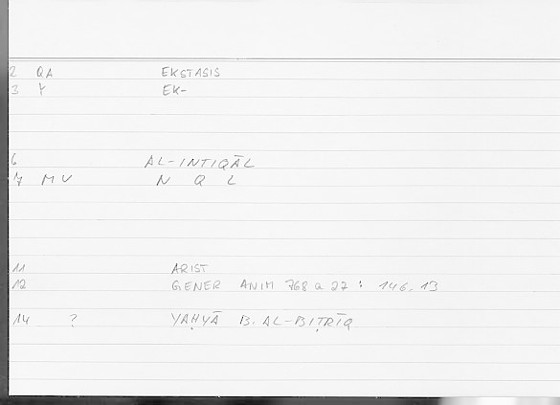 2 QA EKSTASIS
3 Y EK-
6 AL-INTIQĀL
7 MV N Q L
11 ARIST
12 GENER ANIM 768 a 27 : 146.13
14 ? YAḤYĀ B. AL-BIṬRĪQ